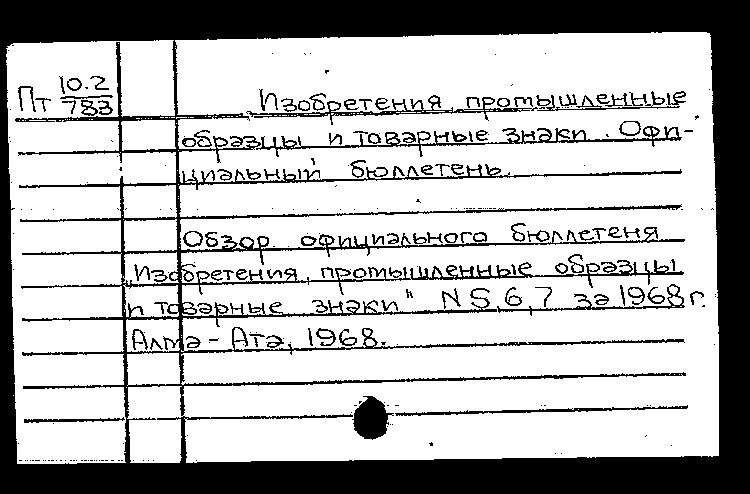 Пт 10.2/783
„Изобретения, промышленные
образцы и товарные знаки. Офи-
циальный бюллетень.
Обзор официального бюллетеня
„Изобретения, промышленные образцы
и товарные знаки" N 5,6,7 за 1968 г.
Алма-Ата, 1968.